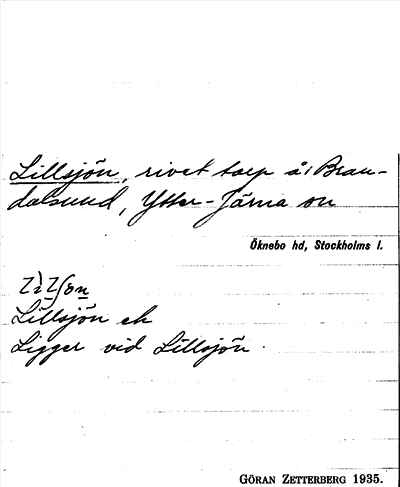 Lillsjön, rivet torp å Bran-
dalsund, Ytter-Järna sn
Öknebo hd, Stockholms l.
Lillsjön ek
Ligger vid Lillsjön
GÖRAN ZETTERBERG 1935.